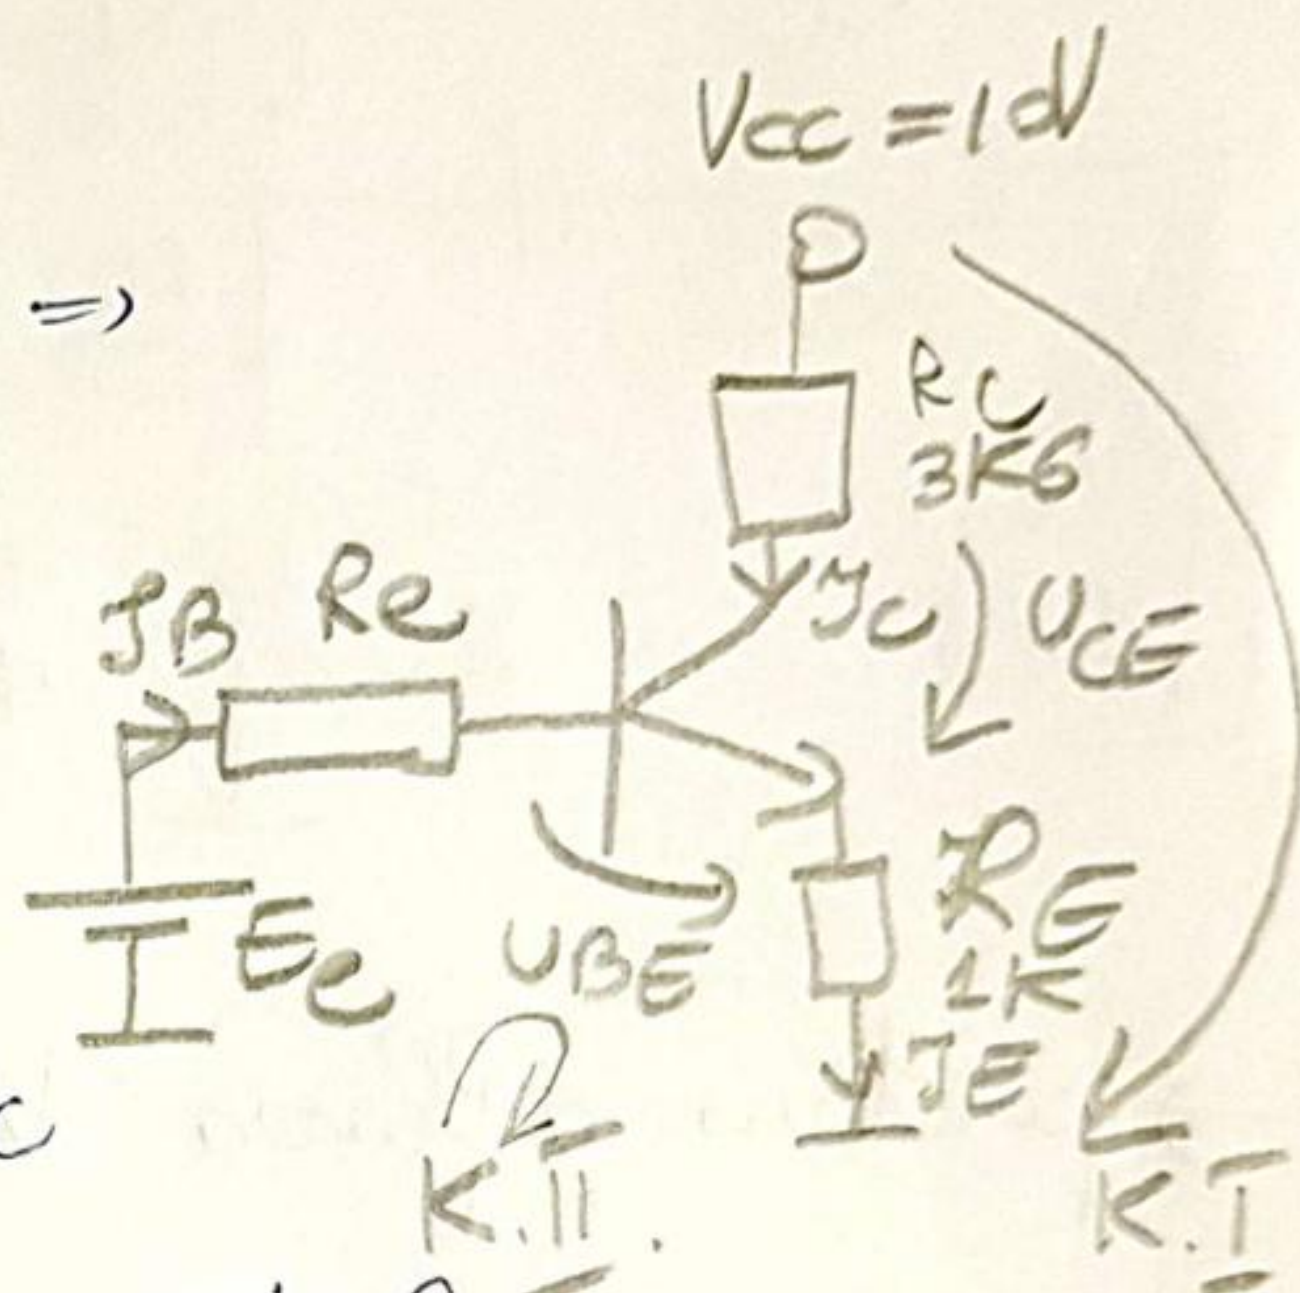 Vcc = 10V
=>
RC
3K6
JB
Re
JC
UCE
Ee
UBE
RE
1K
JE
K.II.
K.I